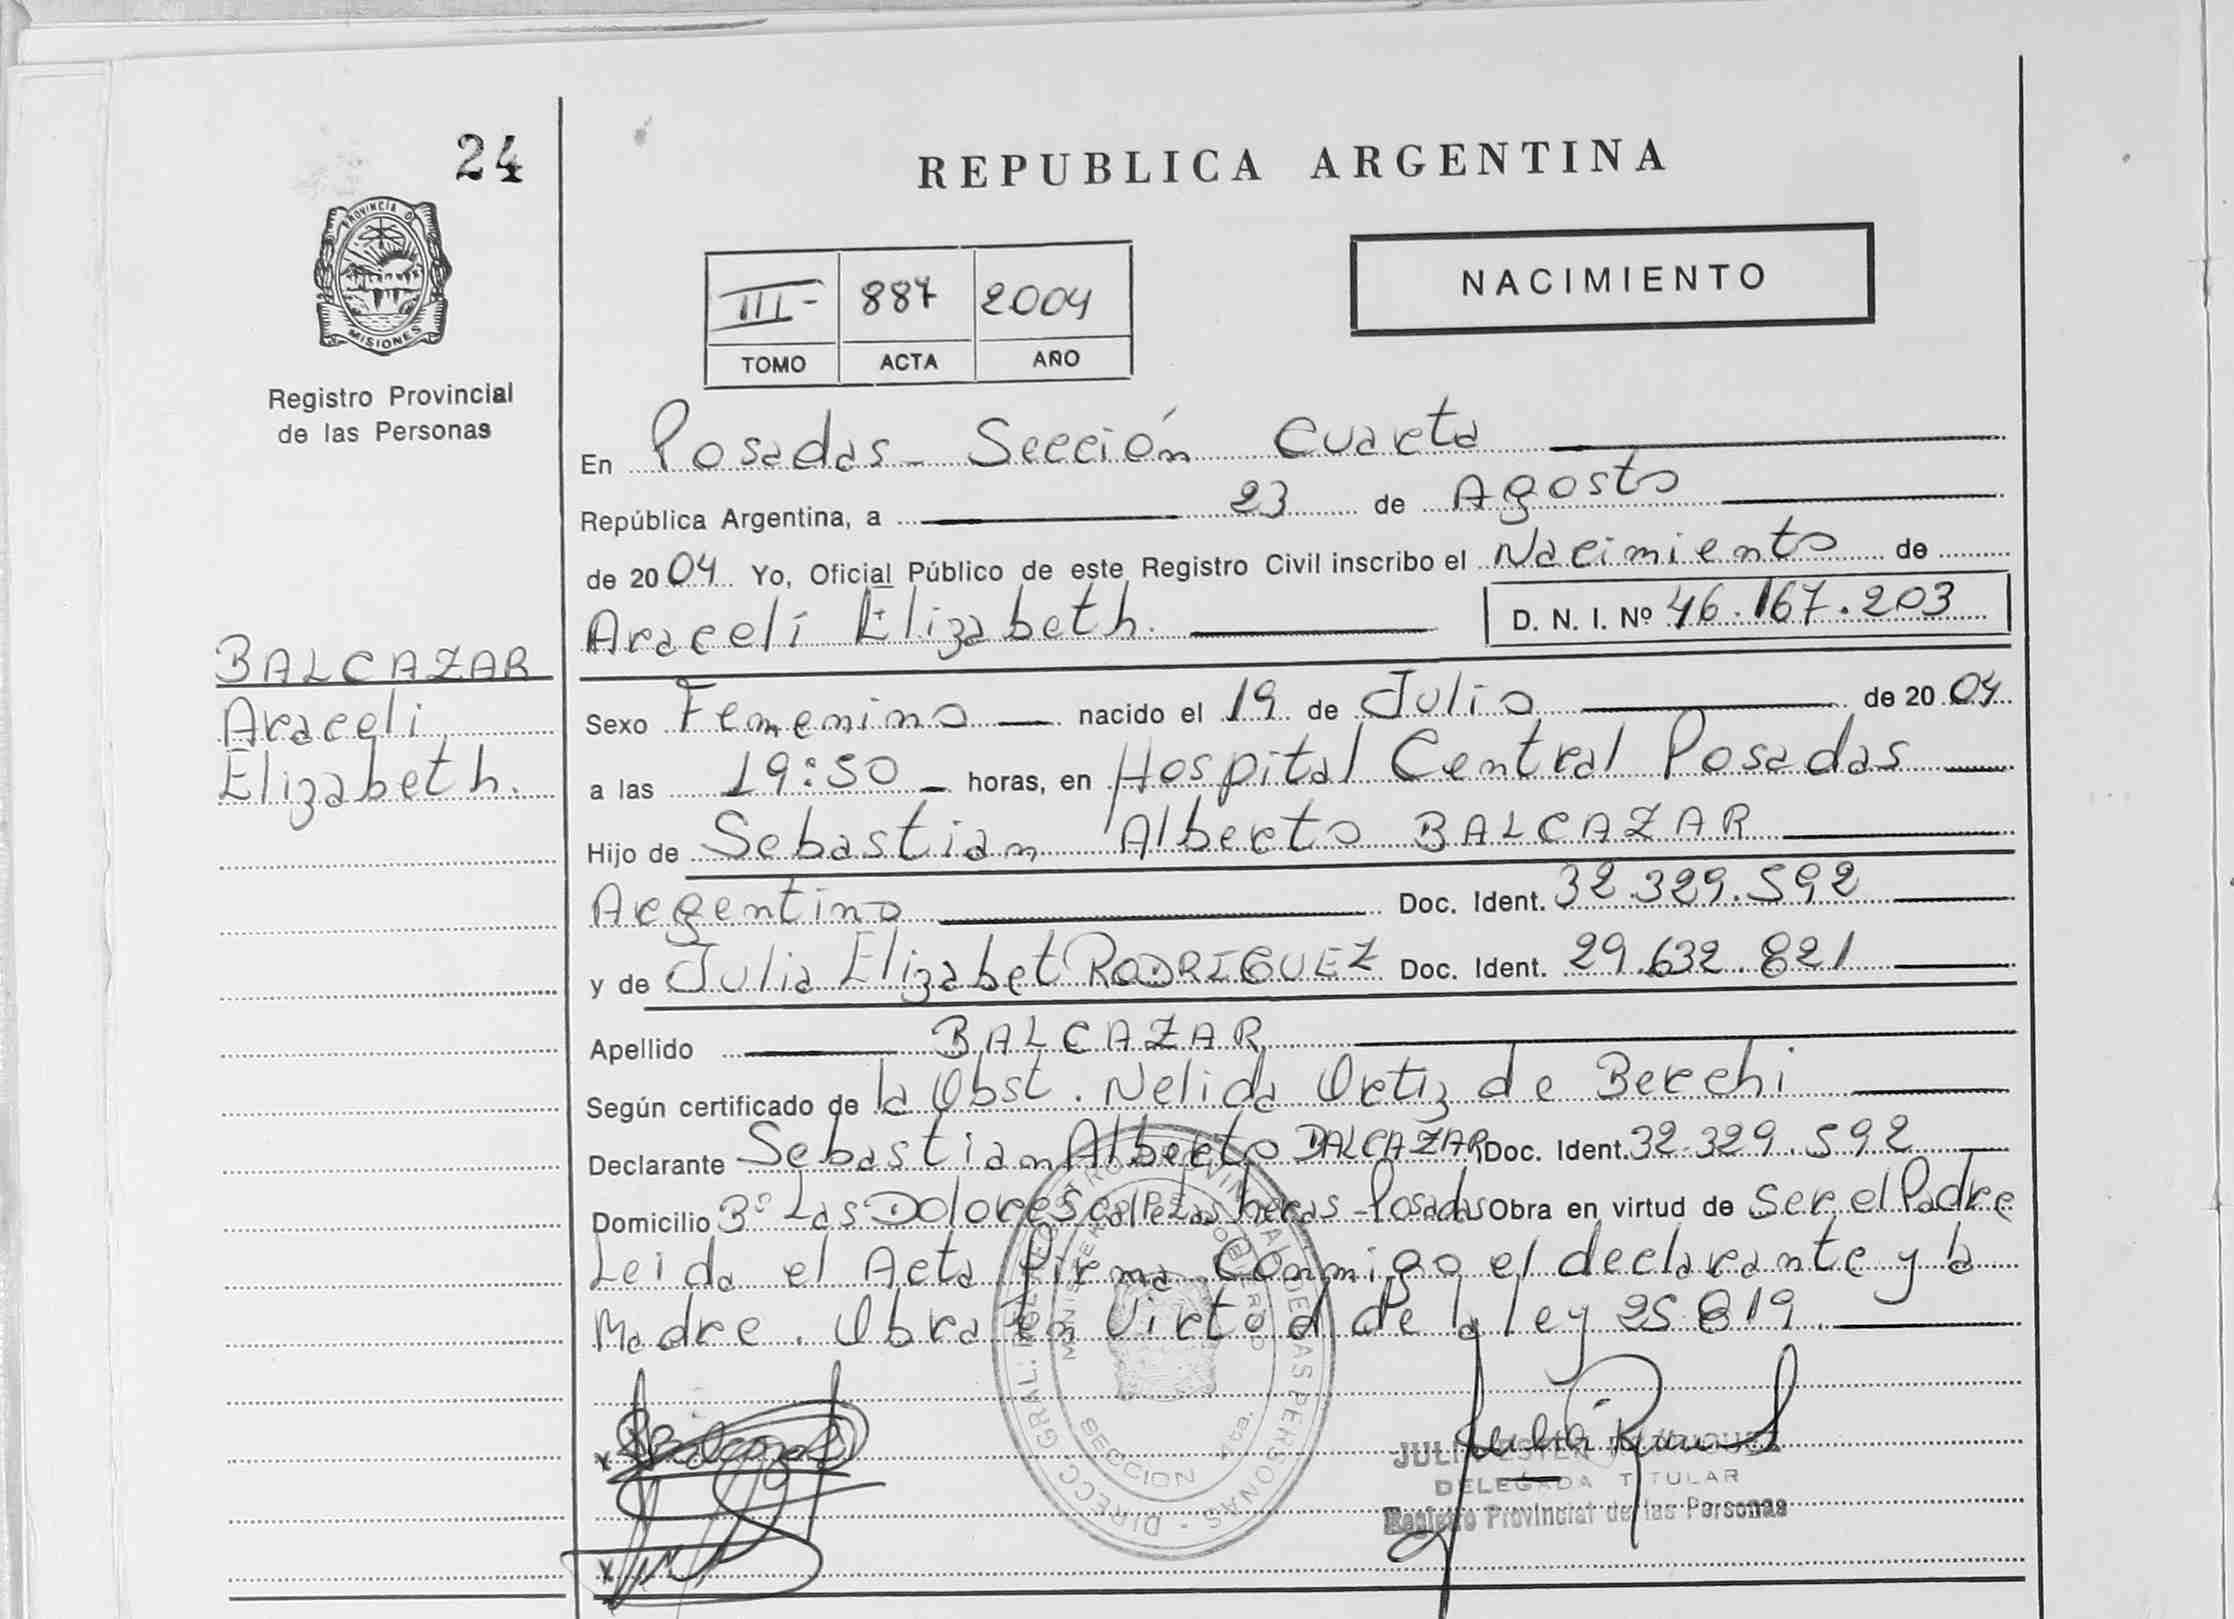 24
REPUBLICA ARGENTINA
PROVINCIA D
MISIONES
Registro Provincial
de las Personas
NACIMIENTO
III - 887 2004
TOMO ACTA AÑO
En Posadas - Sección Cuarta
República Argentina, a 23 de Agosto
de 2004 Yo, Oficial Público de este Registro Civil inscribo el Nacimiento de
Aracelí Elizabeth. D. N. I. Nº 46.167.203
BALCAZAR
Araceli
Elizabeth.
Sexo Femenino nacido el 19 de Julio de 2004
a las 19:50 horas, en Hospital Central Posadas
Hijo de Sebastian Alberto BALCAZAR
Argentino Doc. Ident. 32.329.592
y de Julia Elizabet RODRIGUEZ Doc. Ident. 29.632.821
Apellido BALCAZAR
Según certificado de la Obst. Nelida Ortiz de Berchi
Declarante Sebastian Alberto BALCAZAR Doc. Ident. 32.329.592
Domicilio 3º Las Dolores heras - Posadas Obra en virtud de Ser el Padre
Leida el Acta firma Conmigo el declarante y la
Madre. Obra en Virtud de la ley 25.819
DIRECC. GRAL. PERSONAS
SECCION
DELEGADA TITULAR
Registro Provincial de las Personas